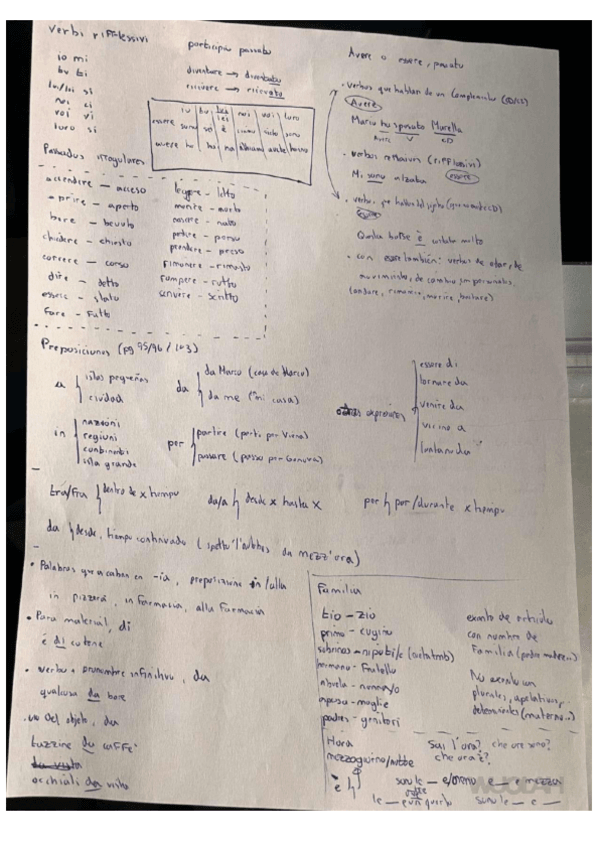 Verbi riflessivi
io mi
tu ti
lui/lei si
noi ci
voi vi
loro si
participio passato
diventare → diventato
ricevere → ricevuto
io tu lui lei noi voi loro
essere sono sei è siamo siete sono
avere ho hai ha abbiamo avete hanno
Passados irregulares
accendere — acceso
aprire — aperto
bere — bevuto
chiedere — chiesto
correre — corso
dire — detto
essere — stato
fare — fatto
leggere — letto
morire — morto
nascere — nato
perdere — perso
prendere — preso
rimanere — rimasto
rompere — rotto
scrivere — scritto
Avere o essere, passato
• verbos que hablan de un complemento
Avere
Mario ha sposato Marella
Avere V CD
• verbos (riflessivi)
Mi sono alzato essere
• verbos que hablan del sujeto
è costata molto
• con essere también: verbos de estar, de
movimiento, de cambio
Preposiciones (pg 95/96 / 103)
a islas pequeñas
ciudad
da da Marco (casa de Marco)
da me (mi casa)
in nazioni
regioni
continenti
isla grande
per partire (parto per Vienna)
passare (passo per Genova)
otras expresiones
essere di
tornare da
venire da
vicino a
lontano da
tra/fra dentro de x tiempo
da/a desde x hasta x
per por/durante x tiempo
da desde, tiempo continuado (aspetto l'autobus da mezz'ora)
• Palabras que acaban en -ia, preposizione in/alla
in pizzeria, in farmacia, alla farmacia
• Para material, di
è di cotone
• verbo o pronombre infinitivo, da
qualcosa da bere
• uso del objeto, da
tazzina da caffè
occhiali da vista
Familia
tio — zio
primo — cugino
sobrinos — nipoti/e
hermano — fratello
abuela — nonna/o
esposa — moglie
padres — genitori
exento de artículo
con nombre de
familia
No exento con
plurales, apelativos,
determinantes
Hora
mezzogiorno/notte
è
Sai l'ora? che ore sono?
che ora è?
sono le — e/meno — e — e mezza
sono le — e —
WUOLAH